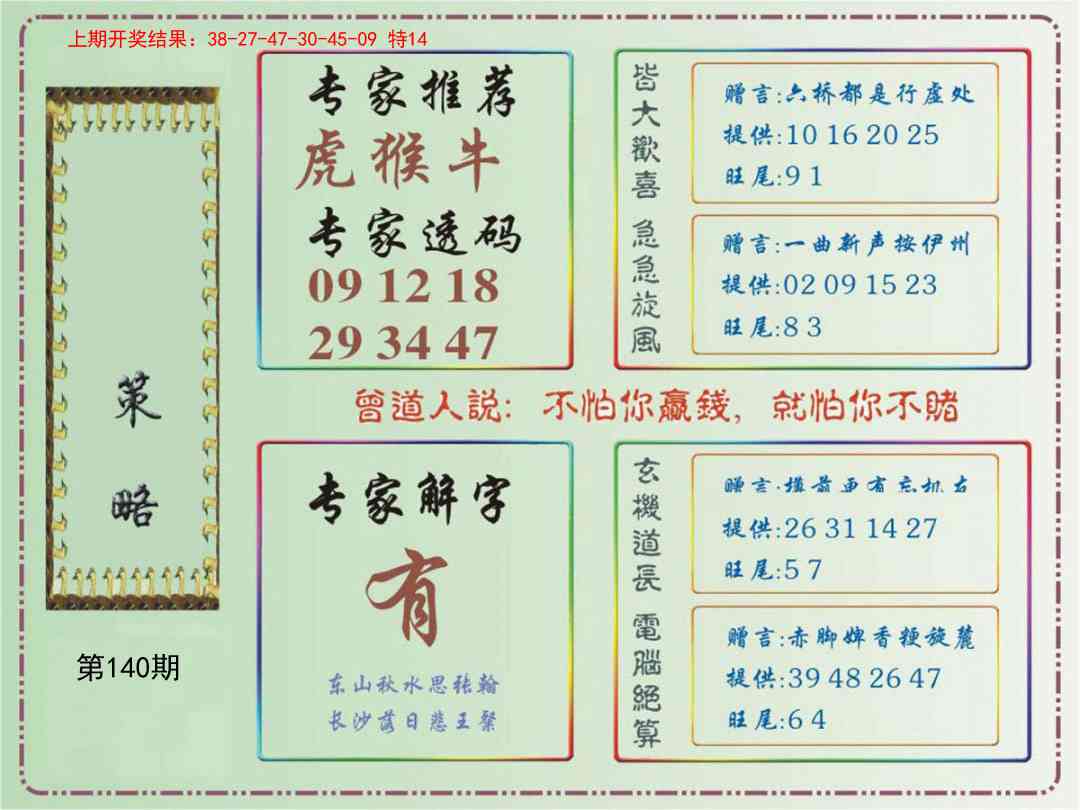 上期开奖结果：38-27-47-30-45-09 特14
策略
第140期
专家推荐
虎猴牛
专家透码
09 12 18
29 34 47
皆大歡喜
赠言:六桥都是行虚处
提供:10 16 20 25
旺尾:9 1
急急旋風
赠言:一曲新声按伊州
提供:02 09 15 23
旺尾:8 3
曾道人説: 不怕你贏錢, 就怕你不賭
专家解字
有
东山秋水思张翰
长沙落日悲王粲
玄機道長
提供:26 31 14 27
旺尾:5 7
電腦絕算
赠言:赤脚婢香粳旋麓
提供:39 48 26 47
旺尾:6 4